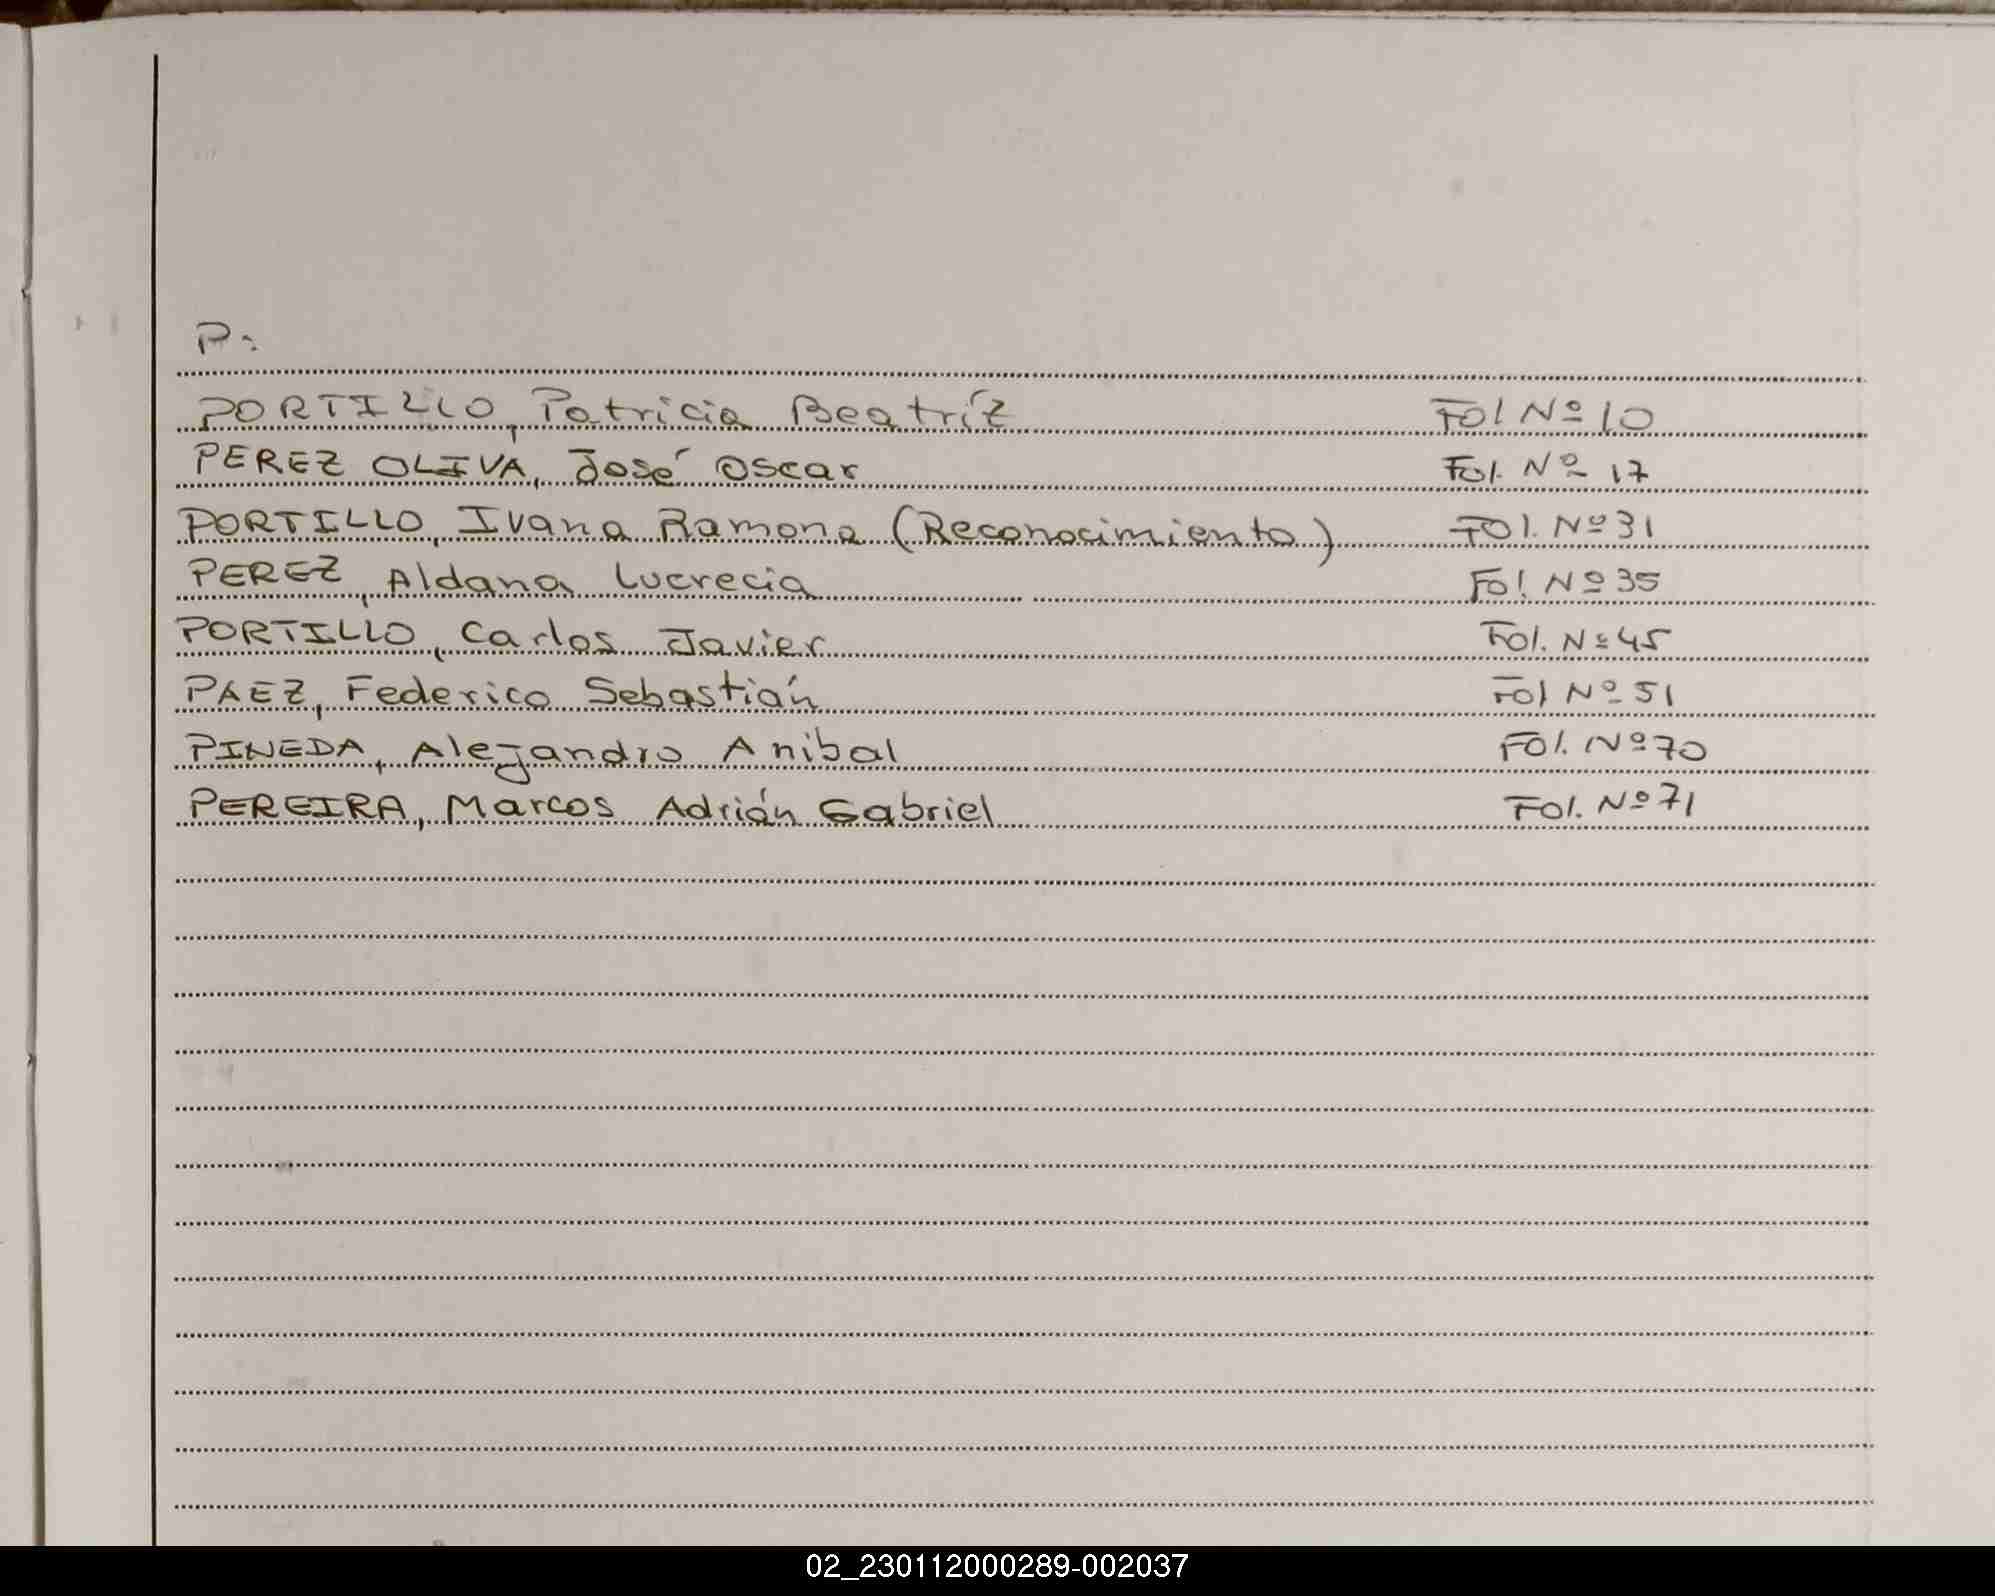 P:
PORTILLO, Patricia Beatríz Fol Nº 10
PEREZ OLIVA, José Oscar Fol. Nº 17
PORTILLO, Ivana Ramona (Reconocimiento) Fol. Nº 31
PEREZ, Aldana Lucrecia Fol Nº 35
PORTILLO, Carlos Javier Fol. Nº 45
PAEZ, Federico Sebastián Fol Nº 51
PINEDA, Alejandro Anibal Fol. Nº 70
PEREIRA, Marcos Adrián Gabriel Fol. Nº 71
02_230112000289-002037